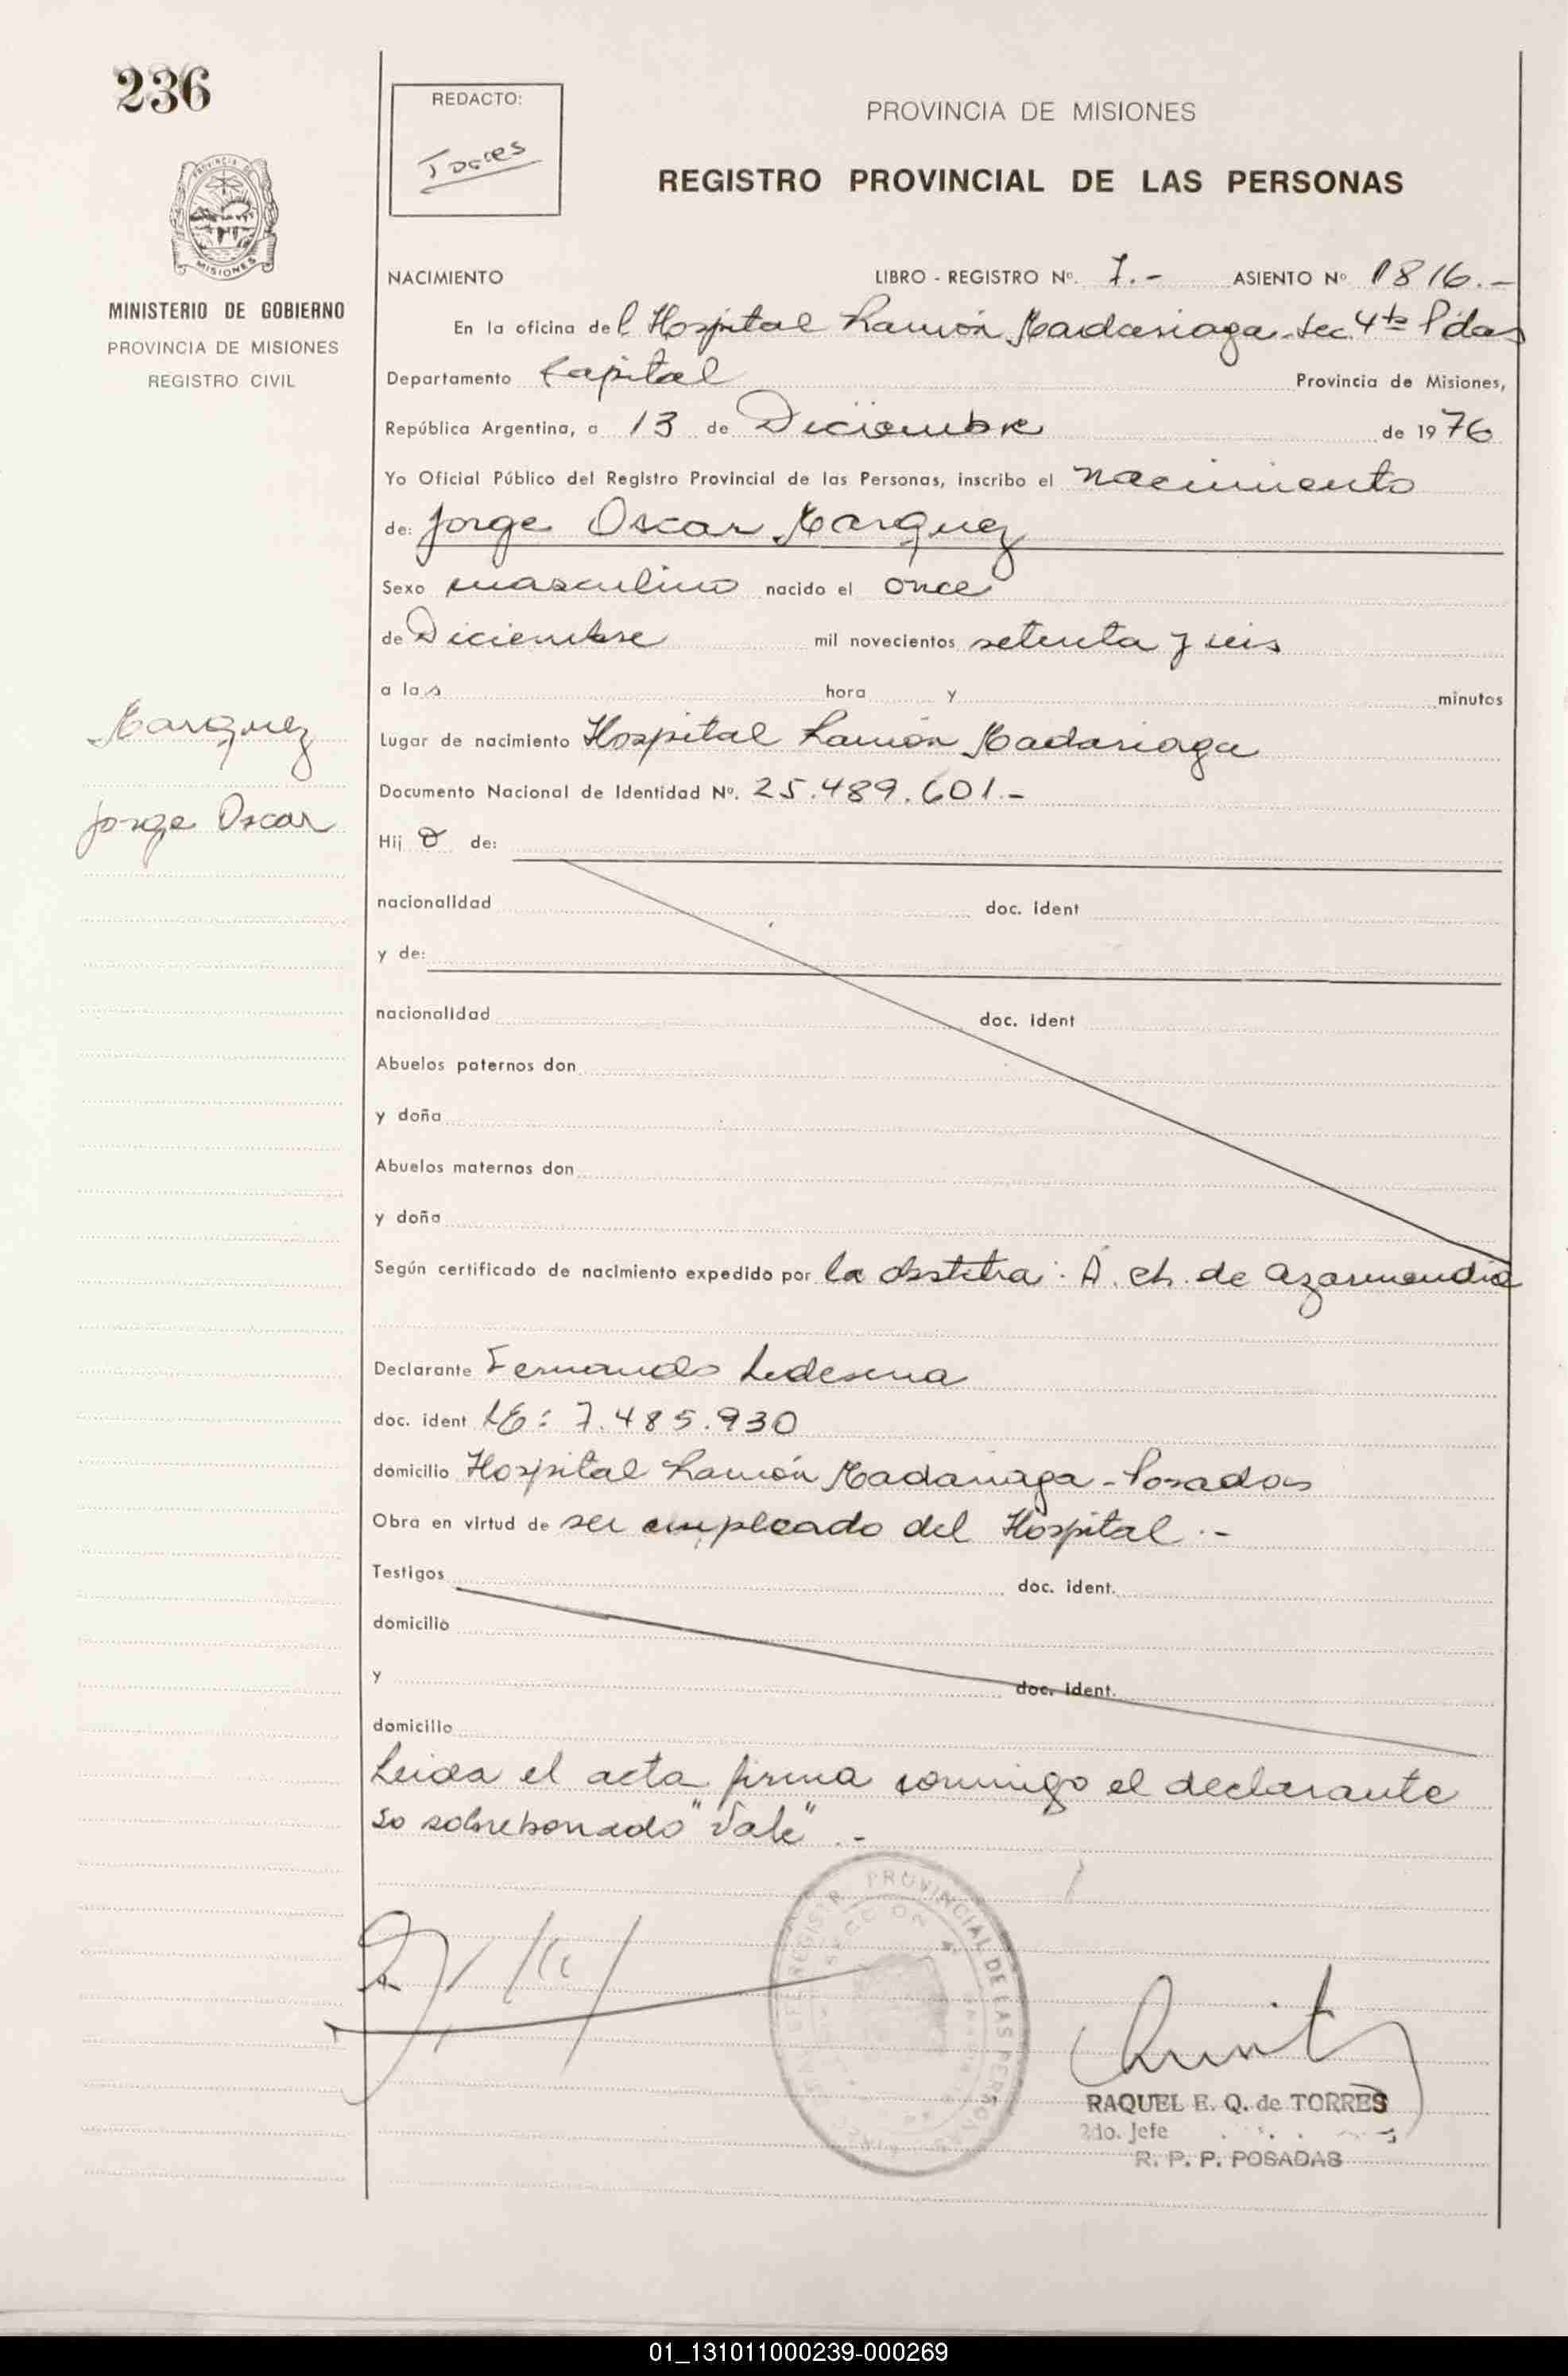 236
REDACTO:
Torres
PROVINCIA DE MISIONES
REGISTRO PROVINCIAL DE LAS PERSONAS
MISIONES
MINISTERIO DE GOBIERNO
PROVINCIA DE MISIONES
REGISTRO CIVIL
NACIMIENTO LIBRO - REGISTRO Nº. 7.- ASIENTO Nº 1816.-
En la oficina del Hospital Ramón Madariaga - Sec. 4ta Pdas
Departamento Capital Provincia de Misiones,
República Argentina, a 13 de Diciembre de 1976
Yo Oficial Público del Registro Provincial de las Personas, inscribo el nacimiento
de: Jorge Oscar Marquez
Sexo masculino nacido el once
de Diciembre mil novecientos setenta y seis
a las hora y minutos
Marquez
Jorge Oscar
Lugar de nacimiento Hospital Ramón Madariaga
Documento Nacional de Identidad Nº. 25.489.601.-
Hij o de:
nacionalidad doc. ident
y de:
nacionalidad doc. ident
Abuelos paternos don
y doña
Abuelos maternos don
y doña
Según certificado de nacimiento expedido por la obstetra: A. ch. de Azarmendia
Declarante Fernando Ledesma
doc. ident LE: 7.485.930
domicilio Hospital Ramón Madariaga - Posadas
Obra en virtud de ser empleado del Hospital.-
Testigos doc. ident.
domicilio
y doc. ident.
domicilio
Leida el acta firma conmigo el declarante
so sobreborrado "Vale".-
PROVINCIAL DE LAS PERSONAS
RAQUEL E. Q. de TORRES
2do. Jefe
R. P. P. POSADAS
01_131011000239-000269